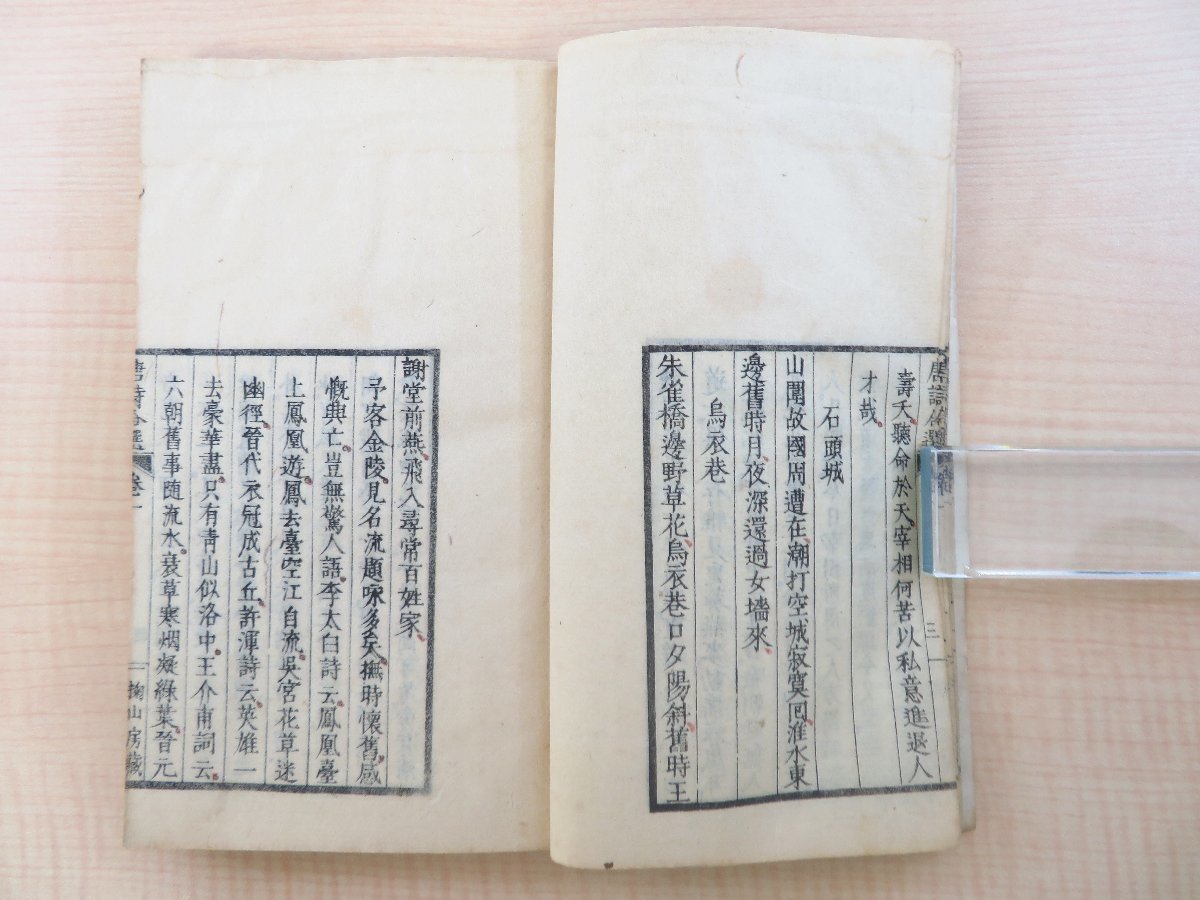 壽夭聽命於天宰相何苦以私意進退人
才哉
石頭城
山圍故國周遭在潮打空城寂寞回淮水東
邊舊時月夜深還過女墻來
烏衣巷
朱雀橋邊野草花烏衣巷口夕陽斜舊時王
謝堂前燕飛入尋常百姓家
予客金陵見名流題咏多矣撫時懷舊感
慨興亡豈無驚人語李太白詩云鳳凰臺
上鳳凰遊鳳去臺空江自流吳宮花草迷
幽徑晉代衣冠成古丘許渾詩云英雄一
去豪華盡只有青山似洛中王介甫詞云
六朝舊事随流水衰草寒烟凝綠葉晉元
唐詩合選 卷一 掬山房藏